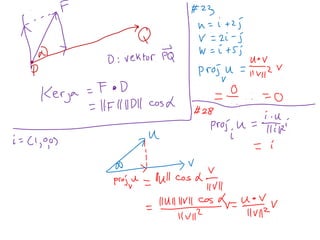 F
α
P
Q
D: vektor PQ
Kerja = F • D
= ||F|| ||D|| cos α
#23
u = i + 2j
v = 2i - j
w = i + 5j
proj_v u = u•v / ||v||² v
= 0 ... = 0
#28
proj_i u = i•u / ||i||² i
= i
i = (1,0,0)
u
v
proj_v u = ||u|| cos α v / ||v||
= ||u|| ||v|| cos α / ||v||² v = u•v / ||v||² v